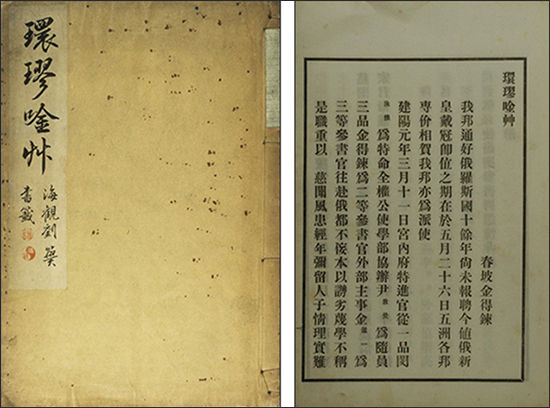 環璆唫艸
海觀劉
書籤
環璆唫艸
春坡金得鍊
我邦通好俄羅斯國十餘年尙未報聘今值俄新
皇戴冠卽位之期在於五月二十六日五洲各邦
專价相賀我邦亦爲派使
建陽元年三月十一日宮內府特進官從一品閔
泳煥爲特命全權公使學部協辦尹致昊爲隨員
三品金得鍊爲二等參書官外部主事金道一爲
三等參書官往赴俄都不佞本以謭劣蔑學不稱
是職重以 慈闈風患經年彌留人子情理實難